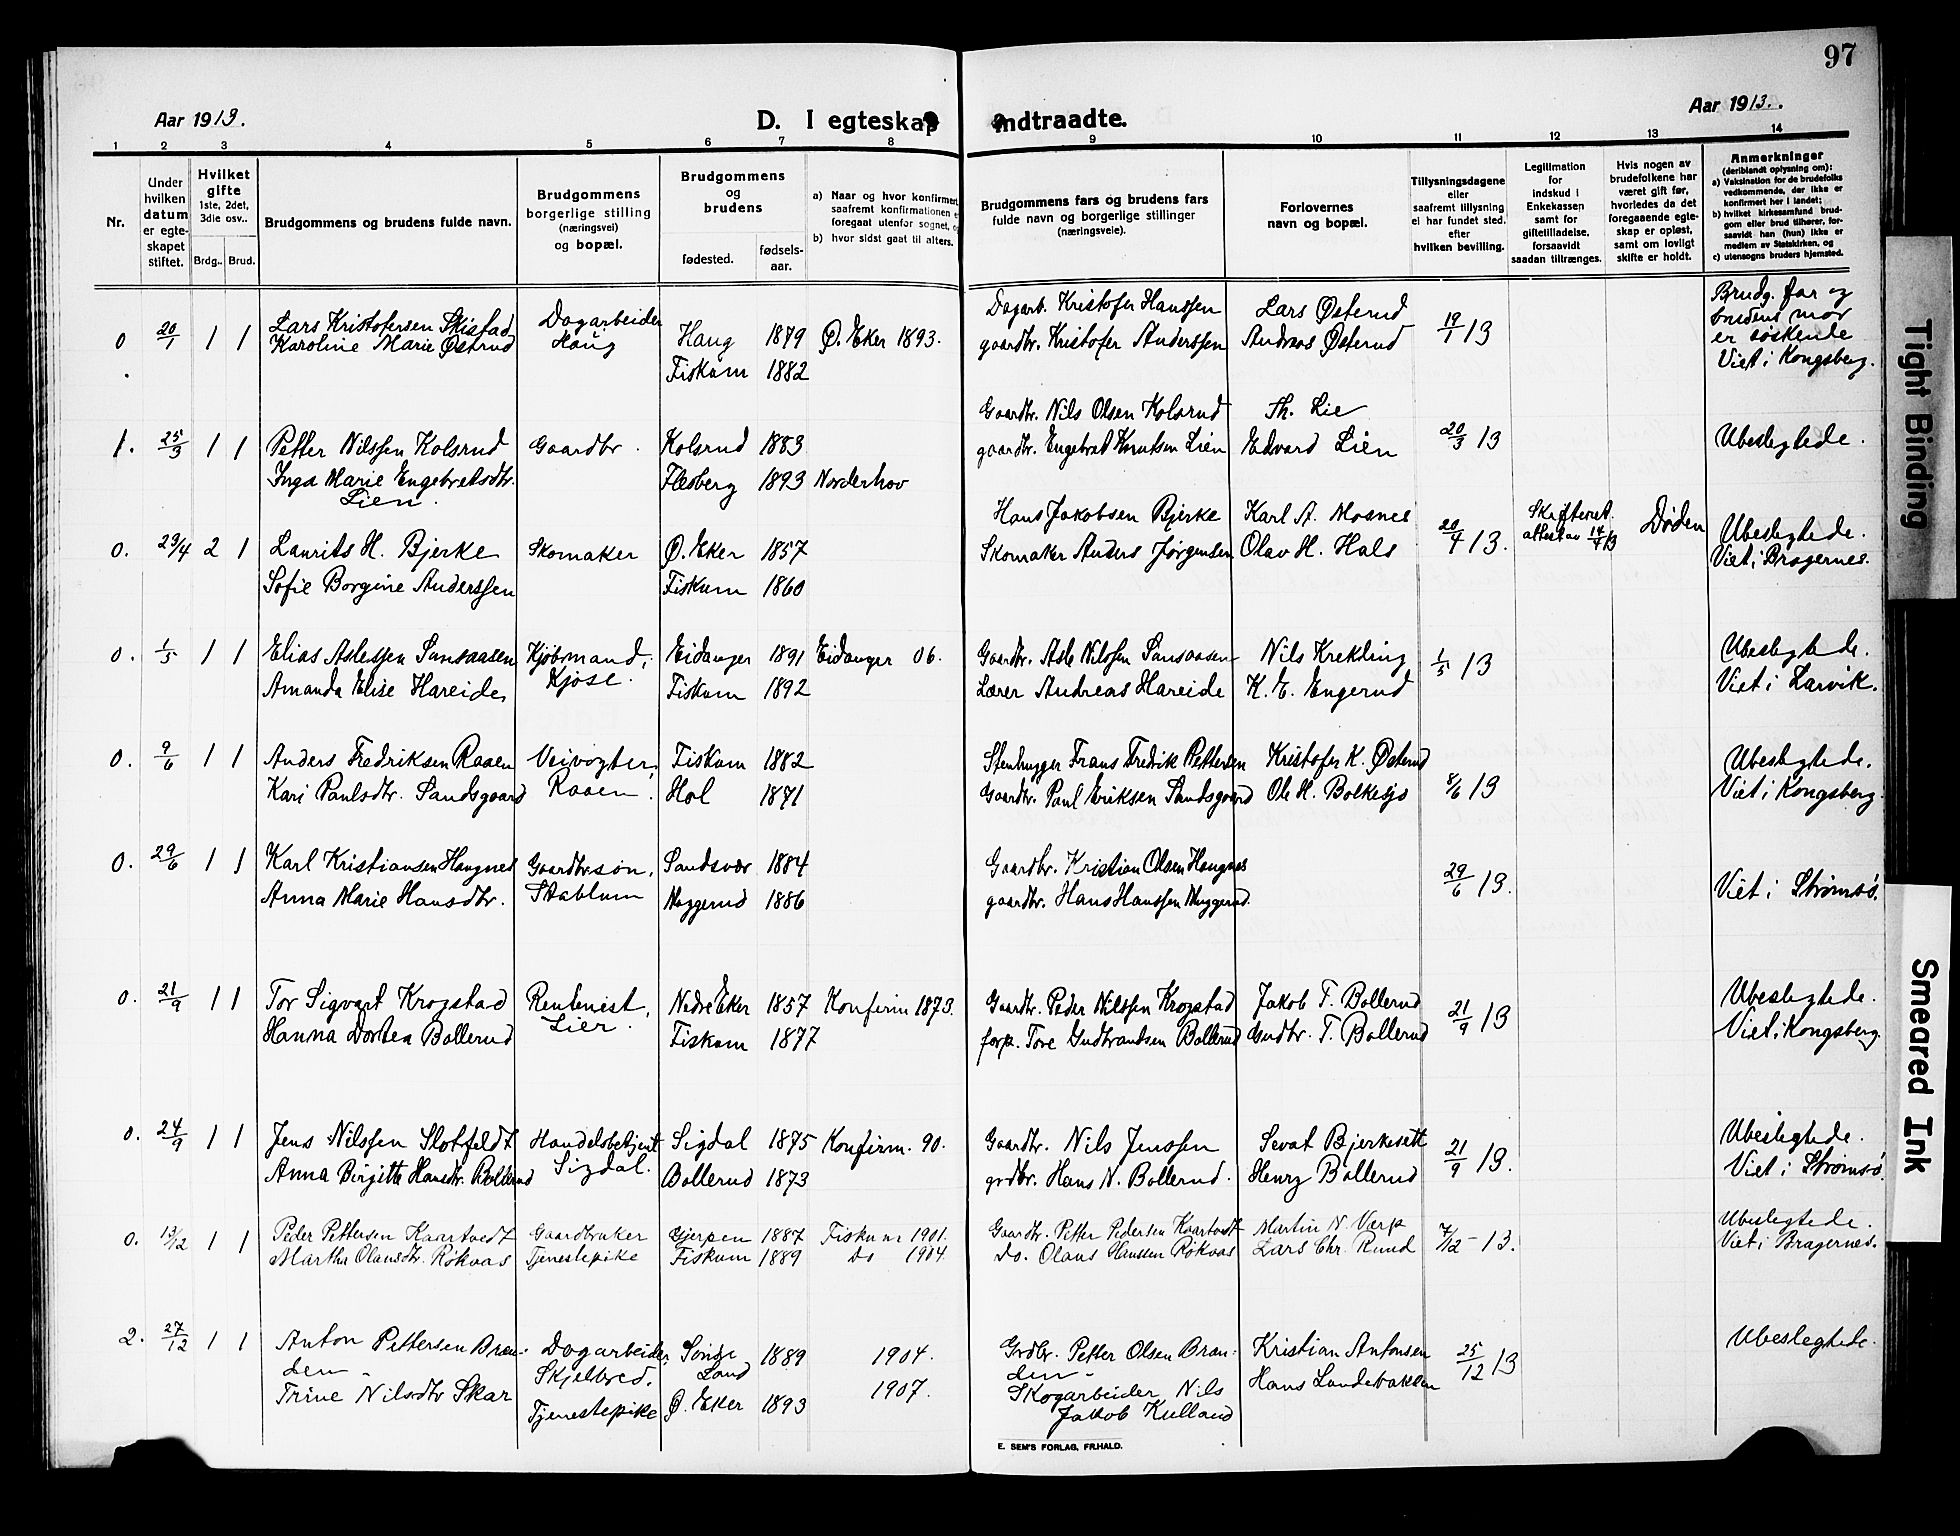 97
Aar 1913.
D. I egteskap indtraadte.
Aar 1913.
1 2 3 4 5 6 7 8 9 10 11 12 13 14
Nr.
Under hvilken datum er egteskapet stiftet.
Hvilket gifte 1ste, 2det, 3die osv..
Brdg.. Brud.
Brudgommens og brudens fulde navn.
Brudgommens borgerlige stilling (næringsvei) og bopæl.
Brudgommens og brudens
fødested.
fødsels-aar.
a) Naar og hvor konfirmert, saafremt konfirmationen foregaat utenfor sognet,
b) hvor sidst gaat til alters.
Brudgommens fars og brudens fars fulde navn og borgerlige stillinger (næringsveie).
Forlovernes navn og bopæl.
Tillysningsdagene eller saafremt tillysning ei har fundet sted. efter hvilken bevilling.
Legitimation for indskud i Enkekassen samt for giftetilladelse, forsaavidt saadan tiltrænges.
Hvis nogen av brudefolkene har været gift før, hvorledes da det foregaaende egteskap er opløst, samt om lovligt skifte er holdt.
Anmerkninger (deriblandt oplysning om):
a) Vaksination for de brudefolks vedkommende, der ikke er konfirmert her i landet;
b) hvilket kirkesamfund brudgom eller brud tilhører, forsaavidt han (hun) ikke er medlem av Statskirken, og
c) utensogns bruders hjemsted.
0 20/1 1 1 Lars Kristofersen Skistad Dagarbeider Haug Haug 1879 Ø. Eker 1893. Dagarb. Kristofer Hanssen Lars Østerud 19/1 13 Brudg. far og brudens mor er søskende
Karoline Marie Østrud Fiskum 1882 gaardbr. Kristofer Anderssen Andreas Østerud Viet i Kongsberg.
1. 25/3 1 1 Petter Nilssen Kolsrud Gaardbr. Kolsrud 1883 Gaardbr. Nils Olsen Kolsrud Th. Lie 20/3 13 Ubeslegtede.
Inga Marie Engebretsdtr. Lien. Flesberg 1893 Norderhov gaardbr. Engebret Knutsen Lien Edvard Lien
0. 29/4 2 1 Laurits H. Bjerke Skomaker Ø. Eker 1857 Hans Jakobsen Bjerke Karl A. Moanes 20/4 13. Skifteret. attest av 14/4 13 Døden Ubeslegtede.
Sofie Borgine Anderssen Fiskum 1860 Skomaker Anders Jørgensen Olav H. Hals Viet i Bragernes.
0. 1/5 1 1 Elias Aslessen Sansaasen Kjøbmand, Kjose. Eidanger 1891 Eidanger 06. Gaardbr. Asle Nilssen Sansaasen Nils Krekling 1/5 13 Ubeslegtede.
Amanda Elise Hareide, Fiskum 1892 Lærer Andreas Hareide K. E. Engerud Viet i Larvik.
0. 9/6 1 1 Anders Fredriksen Raaen Veivogter, Raaen. Fiskum 1882 Stenhugger Frans Fredrik Pettersen Kristofer K. Østerud 8/6 13 Ubeslegtede.
Kari Paulsdtr. Sandsgaard Hol 1871 Gaardbr. Paul Eriksen Sandsgaard Ole H. Bolkesjø Viet i Kongsberg.
0. 29/6 1 1 Karl Kristiansen Haugnes Gaardbr.søn, Stablum Sandsvær 1884 Gaardbr. Kristian Olsen Haugnes 29/6 13. Viet i Strømsø.
Anna Marie Hansdtr. Muggerud 1886 gaardbr. Hans Hanssen Muggerud.
0. 21/9 1 1 Tor Sigvart Krogstad Rentenist, Lier. Nedre Eker 1857 Konfirm 1873. Gaardbr. Peder Nilssen Krogstad Jakob T. Bollerud 21/9 13 Ubeslegtede.
Hanna Dortea Bollerud Fiskum 1877 forp. Tore Gudbrandsen Bollerud Gudbr. T. Bollerud Viet i Kongsberg.
0. 24/9 1 1 Jens Nilssen Slotfeldt Handelsbetjent Sigdal. Sigdal 1875 Konfirm. 90. Gaardbr. Nils Jenssen Sevat Bjerkesett 21/9 13. Ubeslegtede.
Anna Birgitte Hansdtr. Bollerud Bollerud 1873 grdbr. Hans N. Bollerud. Henry Bollerud Viet i Strømsø.
0. 13/12 1 1 Peder Pettersen Kaartvedt Gaardbruker Gjerpen 1887 Fiskum 1901. Gaardbr. Petter Pedersen Kaartvedt Martin N. Værp 7/12 - 13. Ubeslegtede.
Martha Olausdtr. Røkaas Tjenestepike Fiskum 1889 Do 1904. Do. Olaus Hanssen Røkaas Lars Chr. Rund Viet i Bragernes.
2. 27/12 1 1 Anton Pettersen Bræn- Dagarbeider, Søndre 1889 1904. Grdbr. Petter Olsen Bræn- Kristian Antonsen 25/12 13 Ubeslegtede.
den - Skjelbred. Land den - Hans Lundebakken
Trine Nilsdtr Skar Tjenestepike Ø. Eker 1893 1907. Skogarbeider Nils
Jakob Kulland
E. SEM'S FORLAG, FR.HALD.
Tight Binding
Smeared Ink